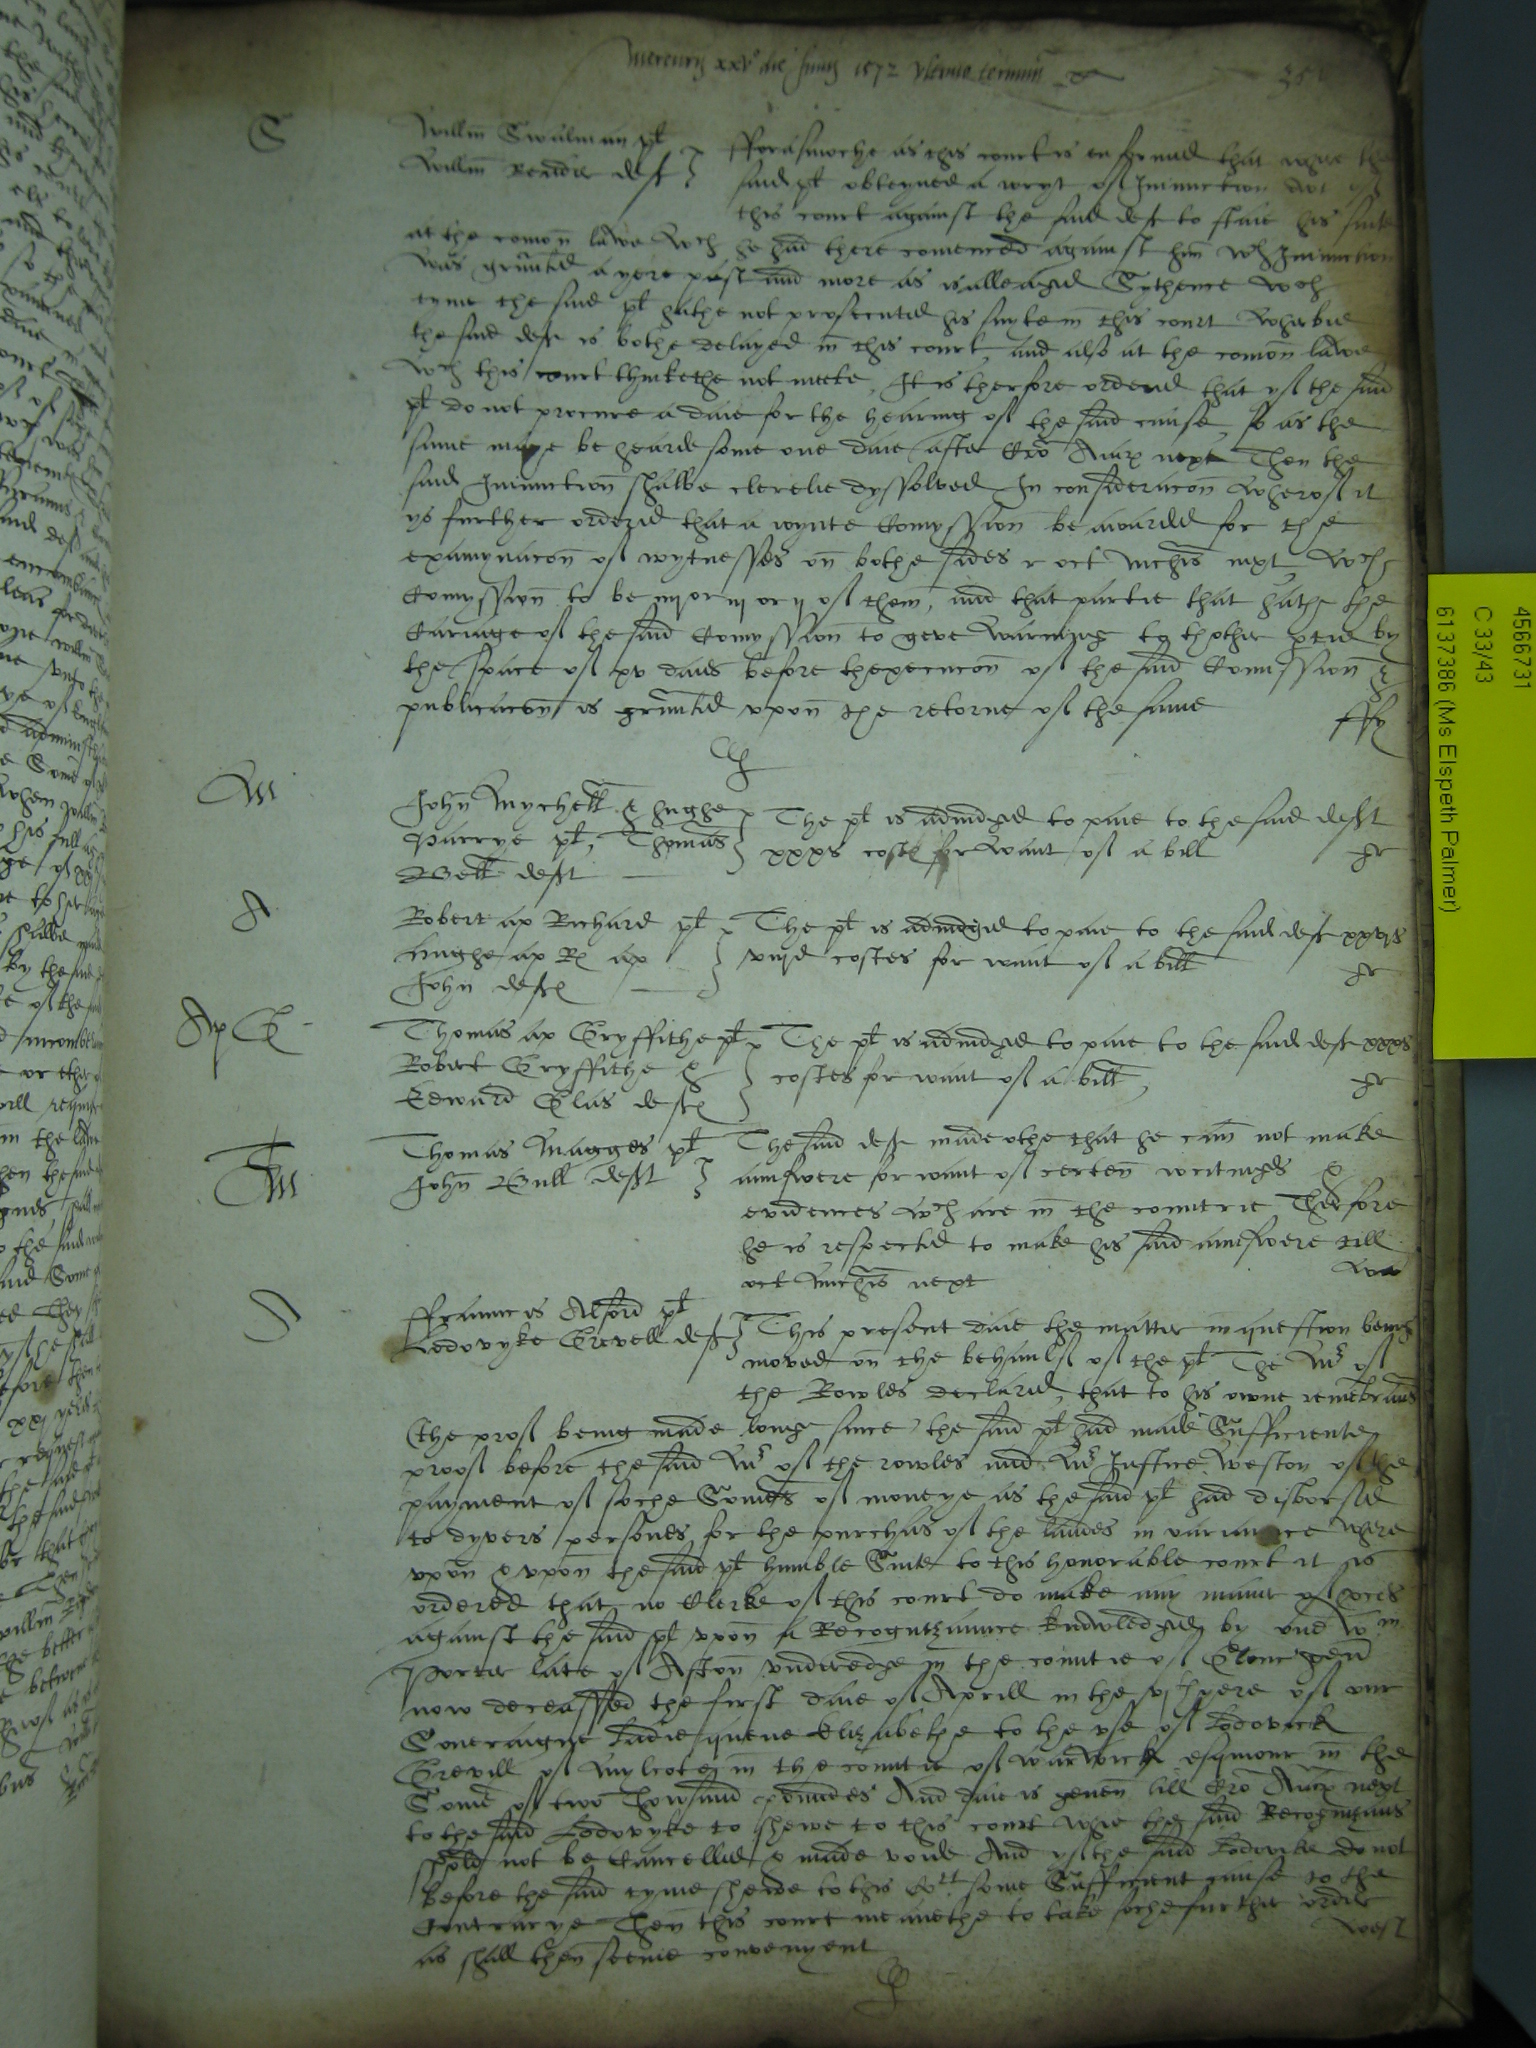 Mercurij xxv° die Junij 1572 ultimo termini
S
Willm Swalman pl
Willm Reader def
fforasmoche as this court is enformed that where the
said pl obteyned a wryt of Iniunction out of
this court against the said def to staie his suite
at the comon lawe wch he had there comenced against him wch Iniunction
was graunted a yere past and more as is alleaged Sythence wch
tyme the said pl hathe not prosecuted his suyte in this court wherbie
the said def is bothe delayed in this court, and also at the comon lawe
wch this court thinkethe not meete, It is therfore ordered that yf the said
pl do not procure a daie for the hearing of the said cause, so as the
same maye be hearde some one daie after Cro Ai'ar next Then the
said Iniunction shalbe clerelie dyssolved In consideracon wherof it
ys further ordered that a ioynte Comyssion be awarded for the
examynacon of wytnesses on bothe sides r oct Michis next, wch
Comyssion to be iiij or iij or ij of them, and that partie that hathe the
Cariage of the said Comyssion to geve warning to thother ptie by
the space of xv daies before thexecucon of the said Comission &
publicacon is graunted upon the retorne of the same
M
John Mychell & hughe
Parrye pl, Thomas
Bell deft
The pl is adiudged to paie to the said deft
xxxs costes for want of a bill
A
Robert ap Richard pl
hughe ap Ri ap
John def
The pl is adiudged to paie to the said def xxvis
viijd costes for want of a bill
Ap G
Thomas ap Gryffithe pl
Robert Gryffithe &
Edward Glas def
The pl is adiudged to paie to the said def xxxs
costes for want of a bill,
M
Thomas Magges pl
John Bull deft
The said def made othe that he can not make
aunswere for want of certen writinges &
evidences wch are in the countrie Therfore
he is respected to make his said aunswere till
oct Michis next
A
ffrauncis Alford pl
Lodovyke Grevell def
This present daie the matter in question being
moved on the behaulf of the pl The Mr of
the Rowles declared, that to his owne remebraunce
(the prof being made longe since) the said pl had made Sufficiente
proof before the said Mr of the rowles and Mr Justice Weston of the
payment of soche Somes of moneye as the said pl had disborsed
to dyvers persones for the purchas of the landes in variaunce where
upon & upon the said pl humble Sute to this honorable court it is
ordered that no Clerke of this court do make any maner of proces
against the said pl upon a Recognizaunce knowledged by one Wm
Porter late of Aston underedge in the countie of Glouc gent
now deceassed the first daie of Aprill in the vjth yere of our
Soveraigne Ladie quene Elizabethe to the use of Lodovick
Grevill of Mylcote in the countie of Warwick esquiour in the
Some of two Thowsand poundes And daie is geven till Cro Ai'ar next
to the said Lodovyke to shewe to this court whie the said Recognizaunce
shold not be Cancelled & made voide And yf the said Lodovike do not
before the said tyme shewe to this Court some Sufficient cause to the
Contrarye Then this court meanethe to take soche further order
as shall then seeme convenyent
4566731
C 33/43
6137386 (Ms Elspeth Palmer)